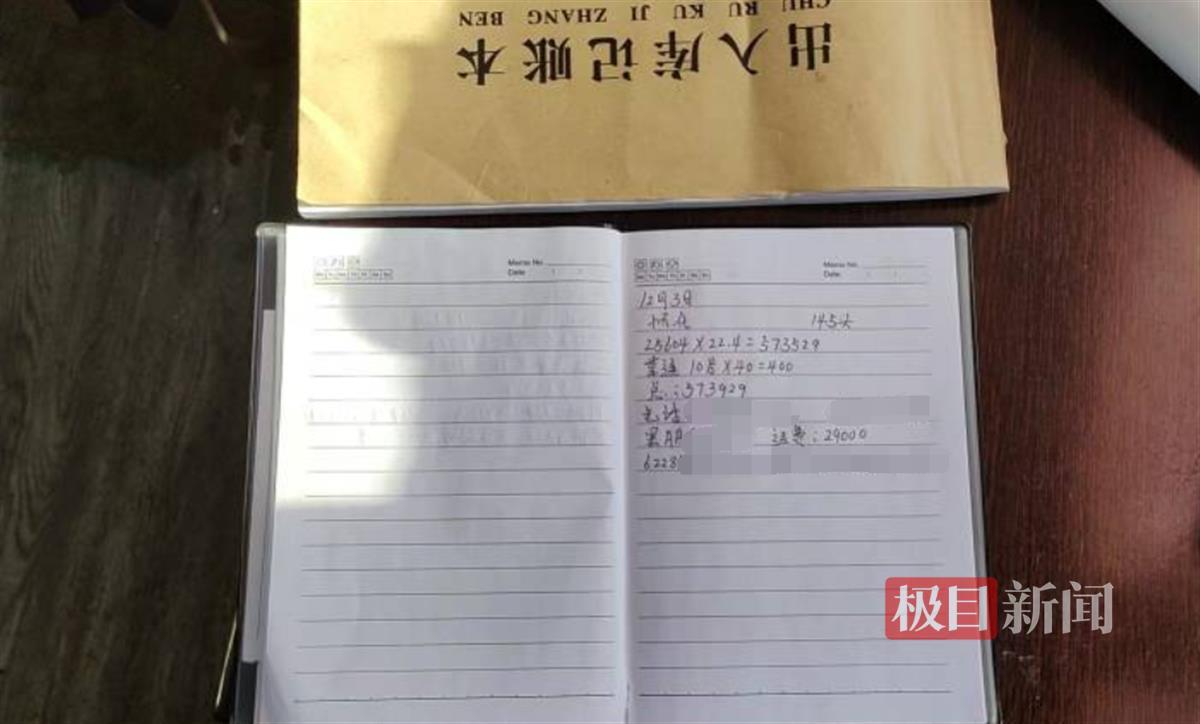 出入库记账本
CHU RU KU JI ZHANG BEN
Memo No.
Date
Memo No.
Date
12月3日
145头
25604×22.4=573529
10君×40=400
总:573929
电话
黑AA
运费:29000
6228
极目新闻